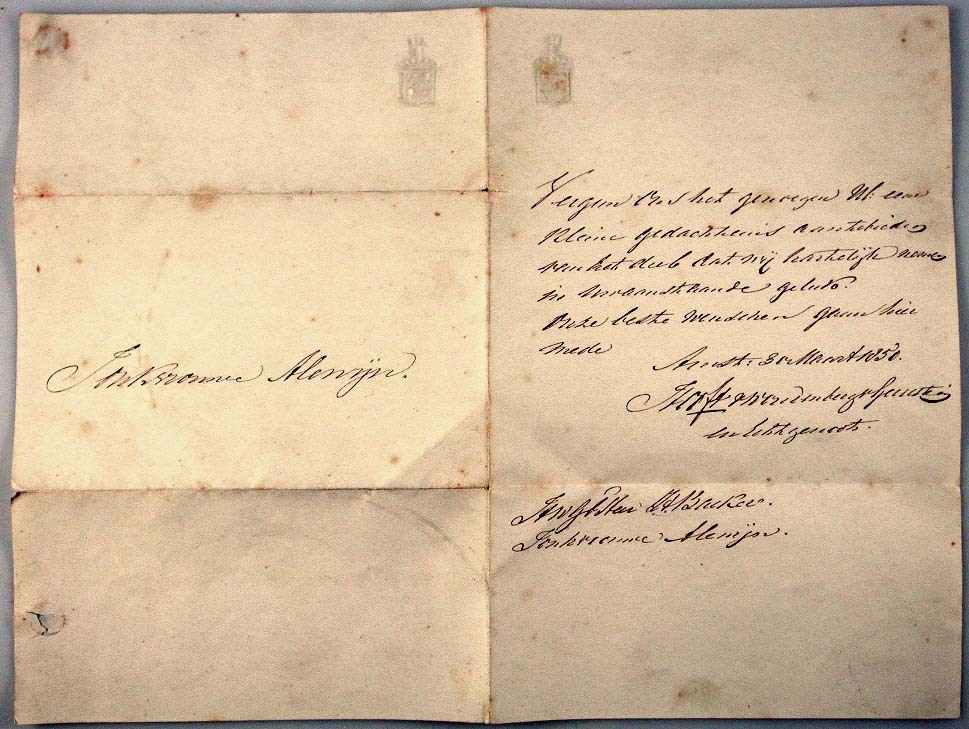 Jonkvrouwe Alewijn.
Vergun Ons het genoegen UE: eene
kleine gedachtenis aantebieden
van het deel dat wij hartelijk nemen
in aanstaande
Onze beste wenschen gaan hier
mede
Amst: 30 Maart 1850.
Hooft v Vreedenburgh
en Echtgenoote.
Backer.
Jonkvrouwe Alewijn.